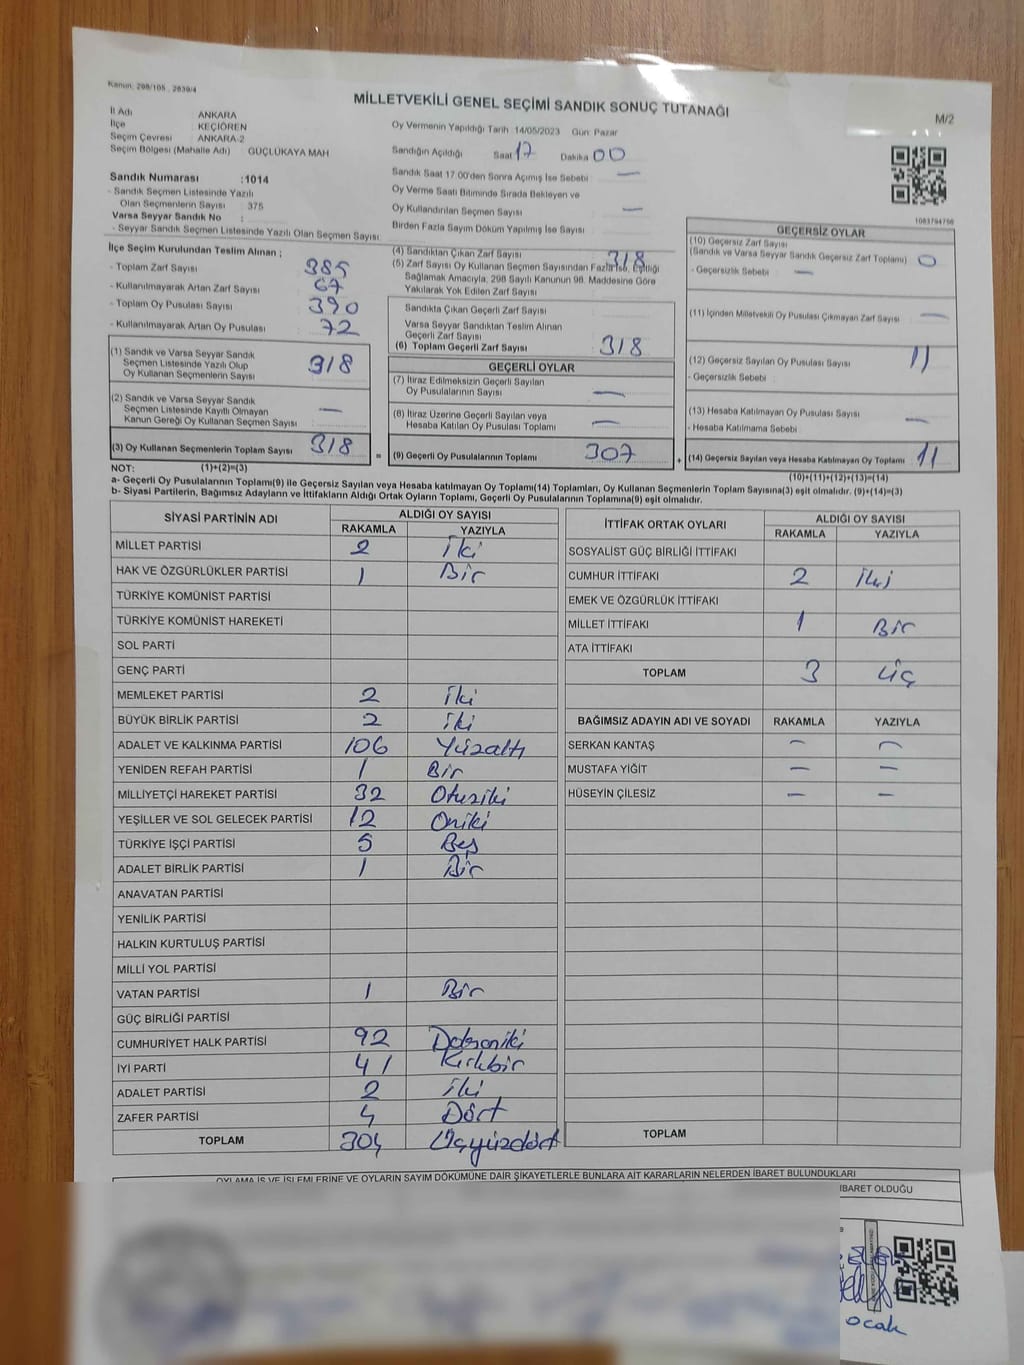 Kanun: 298/105 , 2839/4
MİLLETVEKİLİ GENEL SEÇİMİ SANDIK SONUÇ TUTANAĞI
M/2
İl Adı ANKARA
İlçe KEÇİÖREN
Seçim Çevresi ANKARA-2
Seçim Bölgesi (Mahalle Adı) GÜÇLÜKAYA MAH
Sandık Numarası :1014
- Sandık Seçmen Listesinde Yazılı
Olan Seçmenlerin Sayısı : 375
Varsa Seyyar Sandık No :
- Seyyar Sandık Seçmen Listesinde Yazılı Olan Seçmen Sayısı
Oy Vermenin Yapıldığı Tarih 14/05/2023 Gün: Pazar
Sandığın Açıldığı Saat 17 Dakika 00
Sandık Saat 17:00'den Sonra Açılmış İse Sebebi —
Oy Verme Saati Bitiminde Sırada Bekleyen ve
Oy Kullandırılan Seçmen Sayısı —
Birden Fazla Sayım Döküm Yapılmış İse Sayısı
1083794756
İlçe Seçim Kurulundan Teslim Alınan ;
- Toplam Zarf Sayısı 385
- Kullanılmayarak Artan Zarf Sayısı 67
- Toplam Oy Pusulası Sayısı 390
- Kullanılmayarak Artan Oy Pusulası 72
(1) Sandık ve Varsa Seyyar Sandık
Seçmen Listesinde Yazılı Olup
Oy Kullanan Seçmenlerin Sayısı 318
(2) Sandık ve Varsa Seyyar Sandık
Seçmen Listesinde Kayıtlı Olmayan
Kanun Gereği Oy Kullanan Seçmen Sayısı —
(3) Oy Kullanan Seçmenlerin Toplam Sayısı 318
=
(4) Sandıktan Çıkan Zarf Sayısı 318
(5) Zarf Sayısı Oy Kullanan Seçmen Sayısından Fazla İse, Eşitliği
Sağlamak Amacıyla; 298 Sayılı Kanunun 98. Maddesine Göre
Yakılarak Yok Edilen Zarf Sayısı
Sandıkta Çıkan Geçerli Zarf Sayısı
Varsa Seyyar Sandıktan Teslim Alınan
Geçerli Zarf Sayısı
(6) Toplam Geçerli Zarf Sayısı 318
GEÇERLİ OYLAR
(7) İtiraz Edilmeksizin Geçerli Sayılan
Oy Pusulalarının Sayısı —
(8) İtiraz Üzerine Geçerli Sayılan veya
Hesaba Katılan Oy Pusulası Toplamı —
(9) Geçerli Oy Pusulalarının Toplamı 307
+
GEÇERSİZ OYLAR
(10) Geçersiz Zarf Sayısı
(Sandık ve Varsa Seyyar Sandık Geçersiz Zarf Toplamı) 0
- Geçersizlik Sebebi —
(11) İçinden Milletvekili Oy Pusulası Çıkmayan Zarf Sayısı —
(12) Geçersiz Sayılan Oy Pusulası Sayısı 11
- Geçersizlik Sebebi
(13) Hesaba Katılmayan Oy Pusulası Sayısı —
- Hesaba Katılmama Sebebi
(14) Geçersiz Sayılan veya Hesaba Katılmayan Oy Toplamı 11
NOT: (1)+(2)=(3)
(10)+(11)+(12)+(13)=(14)
a- Geçerli Oy Pusulalarının Toplamı(9) ile Geçersiz Sayılan veya Hesaba Katılmayan Oy Toplamı(14) Toplamları, Oy Kullanan Seçmenlerin Toplam Sayısına(3) eşit olmalıdır. (9)+(14)=(3)
b- Siyasi Partilerin, Bağımsız Adayların ve İttifakların Aldığı Ortak Oyların Toplamı, Geçerli Oy Pusulalarının Toplamına(9) eşit olmalıdır.
SİYASİ PARTİNİN ADI ALDIĞI OY SAYISI
RAKAMLA YAZIYLA
MİLLET PARTİSİ 2 İki
HAK VE ÖZGÜRLÜKLER PARTİSİ 1 Bir
TÜRKİYE KOMÜNİST PARTİSİ
TÜRKİYE KOMÜNİST HAREKETİ
SOL PARTİ
GENÇ PARTİ
MEMLEKET PARTİSİ 2 İki
BÜYÜK BİRLİK PARTİSİ 2 iki
ADALET VE KALKINMA PARTİSİ 106 Yüzaltı
YENİDEN REFAH PARTİSİ 1 Bir
MİLLİYETÇİ HAREKET PARTİSİ 32 Otuziki
YEŞİLLER VE SOL GELECEK PARTİSİ 12 Oniki
TÜRKİYE İŞÇİ PARTİSİ 5 Beş
ADALET BİRLİK PARTİSİ 1 Bir
ANAVATAN PARTİSİ
YENİLİK PARTİSİ
HALKIN KURTULUŞ PARTİSİ
MİLLİ YOL PARTİSİ
VATAN PARTİSİ 1 Bir
GÜÇ BİRLİĞİ PARTİSİ
CUMHURİYET HALK PARTİSİ 92 Doksaniki
İYİ PARTİ 41 Kırkbir
ADALET PARTİSİ 2 İki
ZAFER PARTİSİ 4 Dört
TOPLAM 304 Üçyüzdört
İTTİFAK ORTAK OYLARI ALDIĞI OY SAYISI
RAKAMLA YAZIYLA
SOSYALİST GÜÇ BİRLİĞİ İTTİFAKI
CUMHUR İTTİFAKI 2 iki
EMEK VE ÖZGÜRLÜK İTTİFAKI
MİLLET İTTİFAKI 1 Bir
ATA İTTİFAKI
TOPLAM 3 üç
BAĞIMSIZ ADAYIN ADI VE SOYADI RAKAMLA YAZIYLA
SERKAN KANTAŞ — —
MUSTAFA YİĞİT — —
HÜSEYİN ÇİLESİZ — —
TOPLAM
OYLAMA İŞ VE İŞLEMLERİNE VE OYLARIN SAYIM DÖKÜMÜNE DAİR ŞİKAYETLERLE BUNLARA AİT KARARLARIN NELERDEN İBARET BULUNDUKLARI
İBARET OLDUĞU
ocak